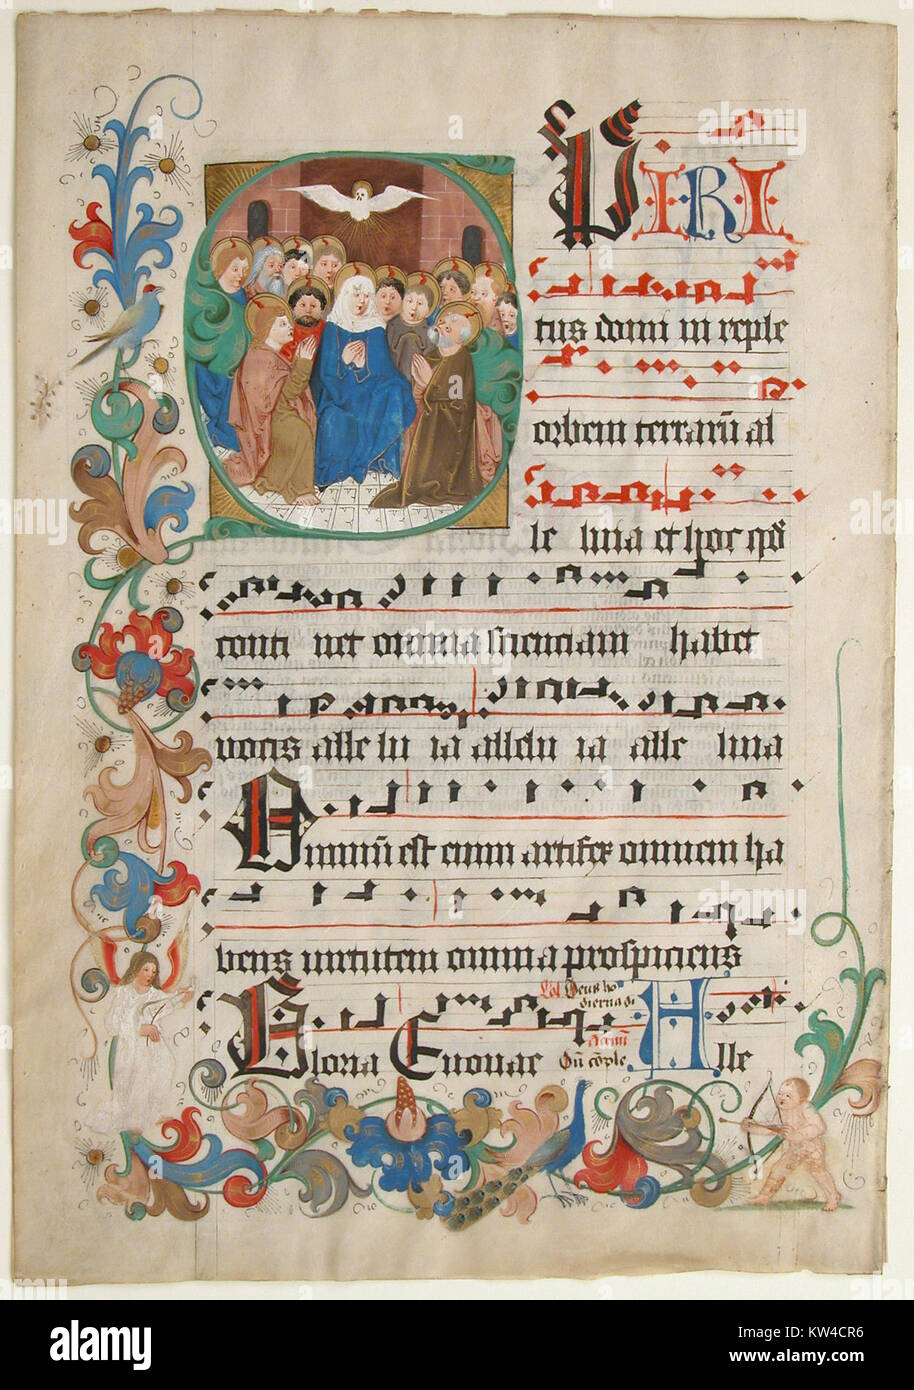 SPIRI
tus domi ni reple
orbem terrarū al
le luia et hoc qd̄
conti net omnia scienciam habet
vocis alle lu ia allelu ia alle luia
Omniū est enim artifex omnem ha
bens virtutem omnia prospiciens
Deus ho
dierna di
Gloria Euouae cōple Alle
alamy
Image ID: KW4CR6
www.alamy.com